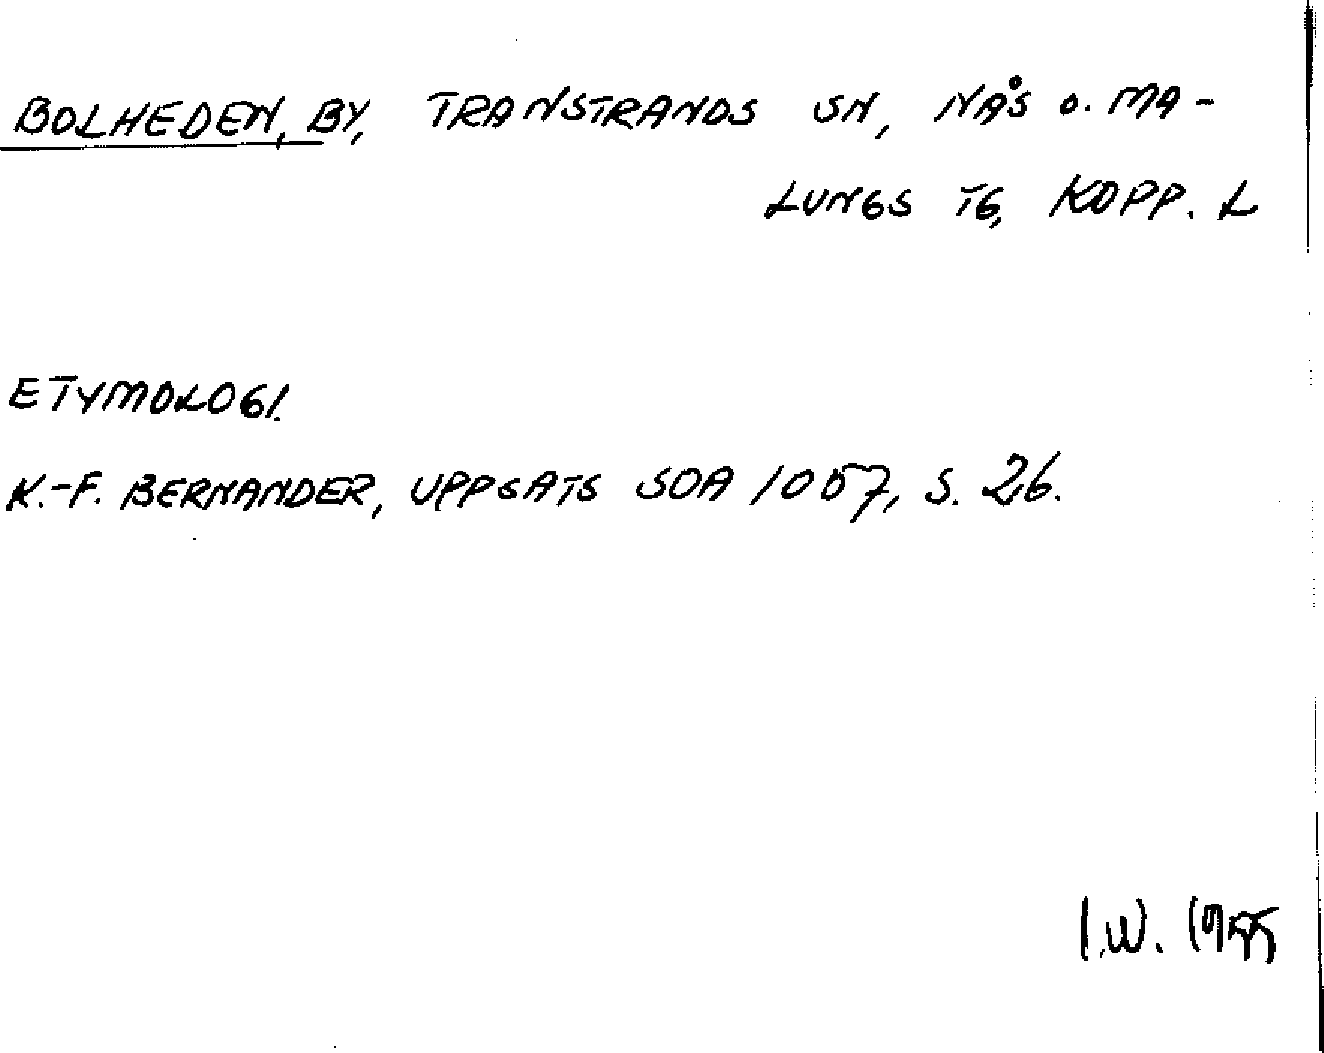 BOLHEDEN, BY, TRANSTRANDS SN, NÅS O. MA-
LUNGS TG, KOPP. L
ETYMOLOGI.
K.-F. BERNANDER, UPPSATS SOA 1057, S. 26.
I.W. 1955